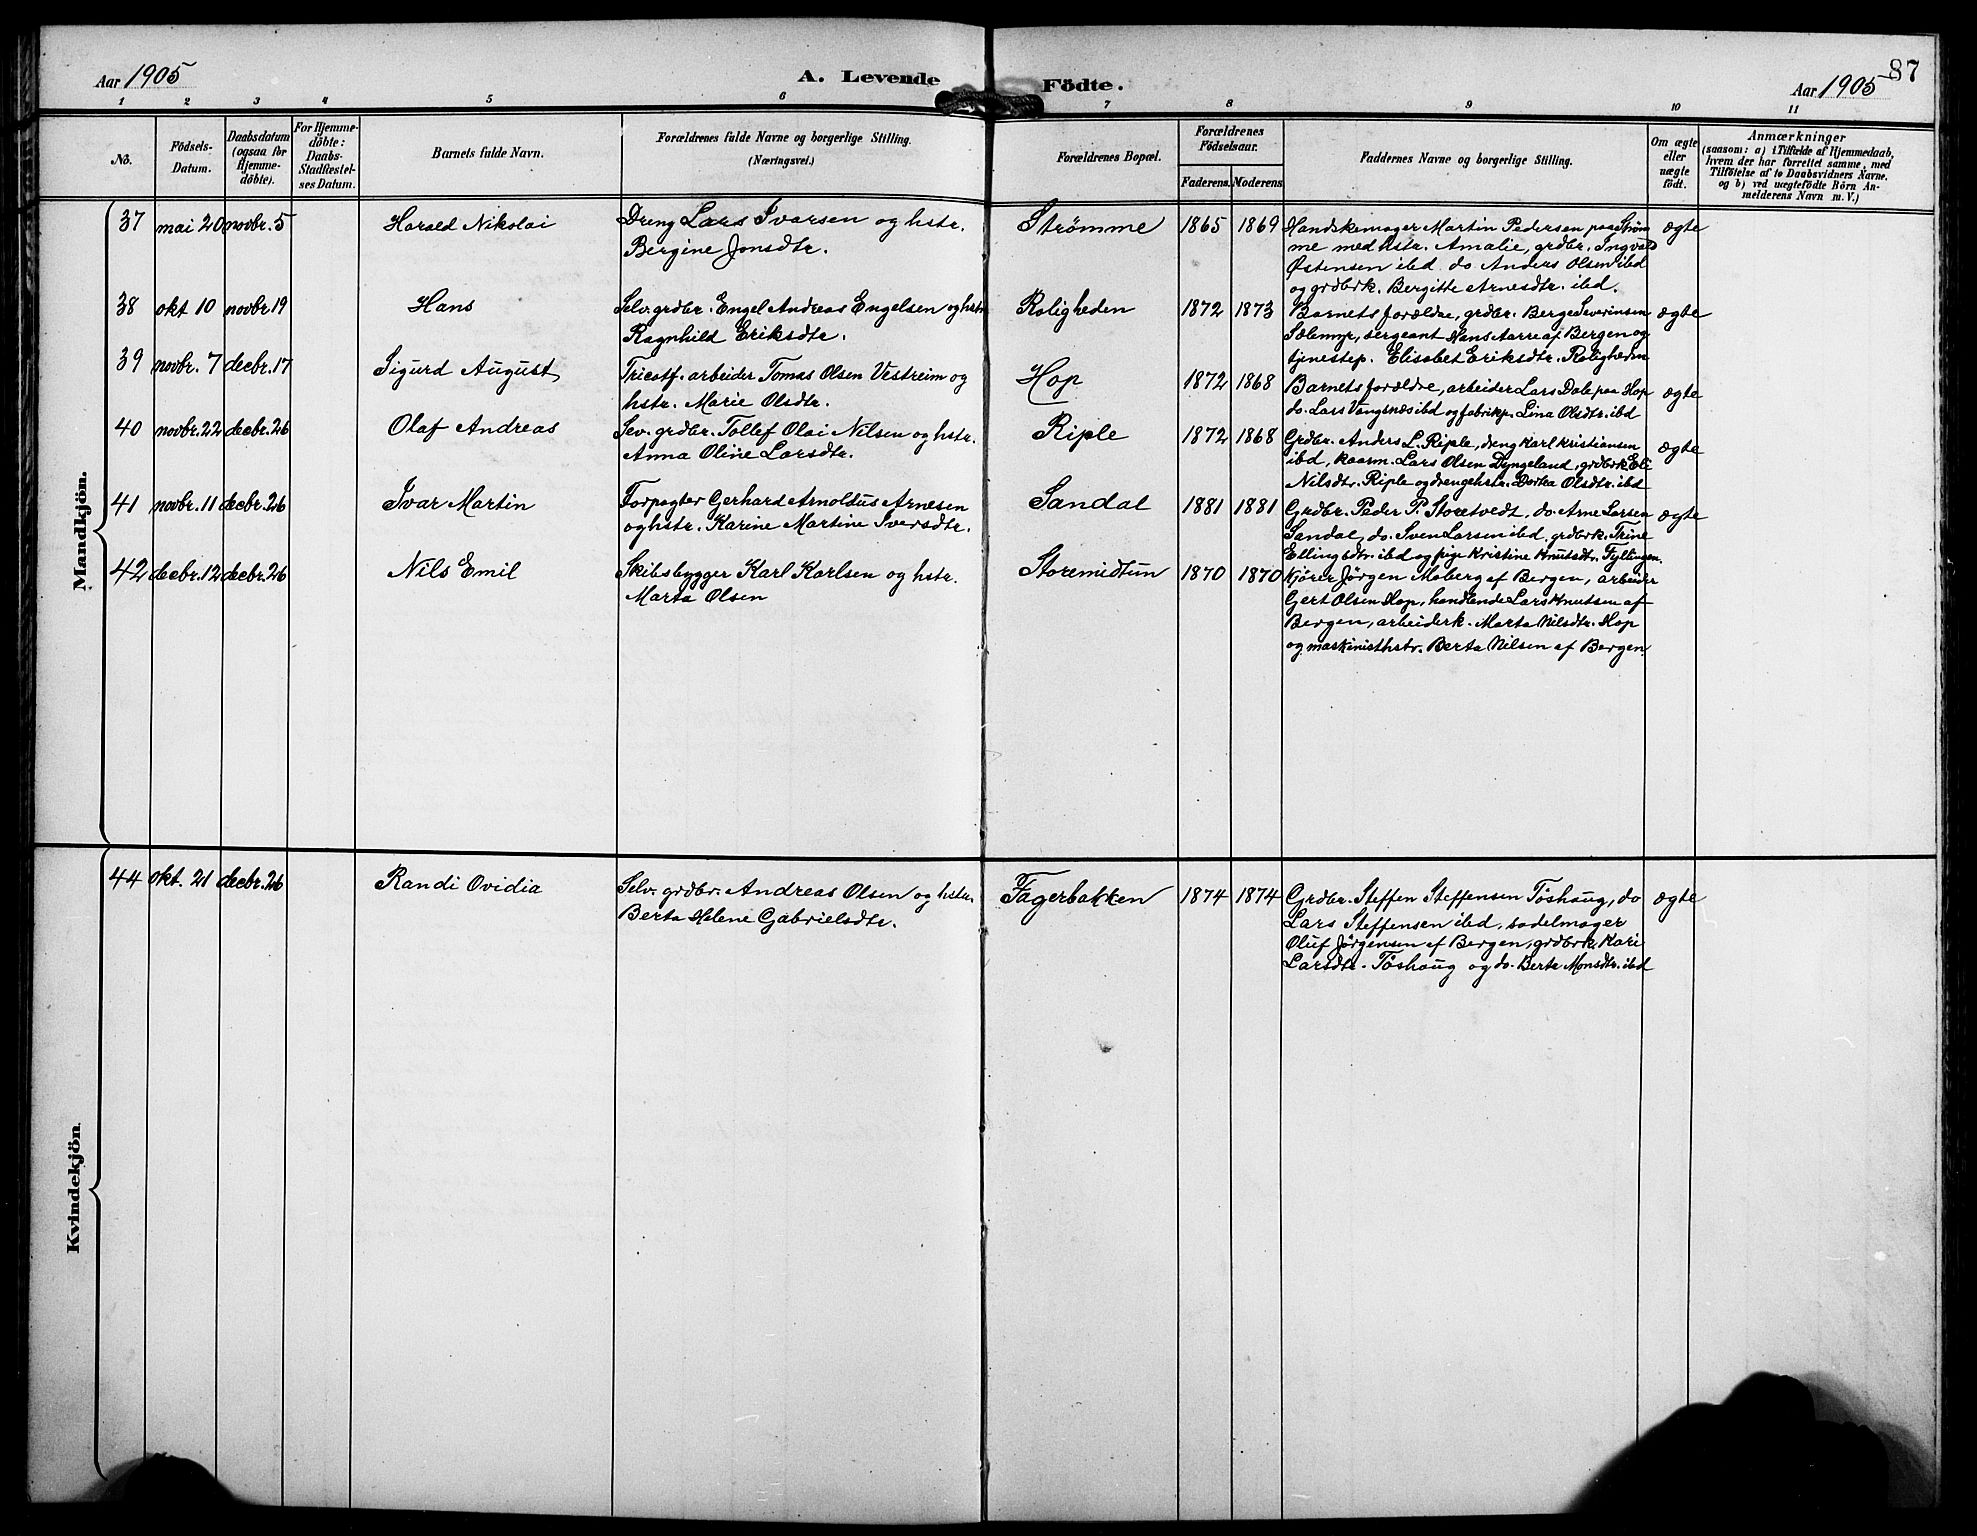 87
Aar 1905
A. Levende Födte.
Aar 1905
1 2 3 4 5 6 7 8 9 10 11
No.
Födsels-Datum.
Daabsdatum (ogsaa for Hjemme-döbte).
For Hjemme-döbte: Daabs-Stadfæstel-ses Datum.
Barnets fulde Navn.
Forældrenes fulde Navne og borgerlige Stilling.
(Næringsvei.)
Forældrenes Bopæl.
Forældrenes Födselsaar.
Faderens. Moderens.
Faddernes Navne og borgerlige Stilling.
Om ægte eller uægte födt.
Anmærkninger
(saasom: a) i Tilfælde af Hjemmedaab,
hvem der har forrettet samme, med
Tilföielse af to Daabsvidners Navne,
og b) ved uægtefödte Börn An-
melderens Navn m.V.)
Mandkjön.
37 mai 20 novbr. 5 Harald Nikolai Dreng Lars Ivarsen og hstr.
Bergine Jonsdtr.
Strømme 1865 1869 Handskemager Martin Pedersen paa Strøm
me med hstr. Amalie, grdbr. Ingvald
Østensen ibd do Anders Olsen ibd
og grdbrk. Bergitte Arnesdtr. ibd.
ægte
38 okt 10 novbr 19 Hans Selv. grdbr. Engel Andreas Engelsen og hstr
Ragnhild Eriksdtr.
Roligheden 1872 1873 Barnets forældre, grdbr. Berge Severinsen
Sælemyr, sergeant Hans Aarre af Bergen og
tjenestep. Elisabet Eriksdtr. Roligheden
ægte
39 novbr. 7 decbr. 17 Sigurd August Tricotf. arbeider Tomas Olsen Vestreim og
hstr. Marie Olsdtr.
Hop 1872 1868 Barnets forældre, arbeider Lars Dale paa Hop
do. Lars Vangsnæs ibd og fabrikp. Lina Olsdtr. ibd
ægte
40 novbr. 22 decbr. 26 Olaf Andreas Sev. grdbr. Tollef Olai Nilsen og hstr.
Anna Oline Larsdtr.
Riple 1872 1868 Grdbr. Anders L. Riple, dreng Karl Kristiansen
ibd, kaarm. Lars Olsen Dyngeland, grdbrk Eli
Nilsdtr. Riple og drengehstr. Dortea Olsdtr. ibd
ægte
41 novbr. 11 decbr. 26 Ivar Martin Forpagter Gerhard Arnoldus Arnesen
og hstr. Karine Martine Iversdtr.
Sandal 1881 1881 Grdbr. Peder P. Storetvedt, do. Arne Larsen
Sandal, do. Sven Larsen ibd, grdbrk. Trine
Ellingsdtr. ibd og pige Kristine Knutsdtr. Fyllingen.
ægte
42 decbr. 12 decbr. 26 Nils Emil Skibsbygger Karl Karlsen og hstr.
Marta Olsen
Storemidtun 1870 1870 Kjører Jørgen Moberg af Bergen, arbeider
Gert Olsen Hop, handlende Lars Knutsen af
Bergen, arbeiderk. Marta Nilsdtr. Hop
og maskinisthstr. Berta Nilsen af Bergen.
Kvindekjön
44 okt. 21 decbr. 26 Randi Ovidia Selv. grdbr. Andreas Olsen og hstr.
Berta Helene Gabrielsdtr.
Fagerbakken 1874 1874 Grdbr. Steffen Steffensen Tøshaug, do
Lars Steffensen ibd, sadelmager
Oluf Jørgensen af Bergen, grdbrk. Kari
Larsdtr. Tøshaug og do. Berta Monsdtr. ibd
ægte